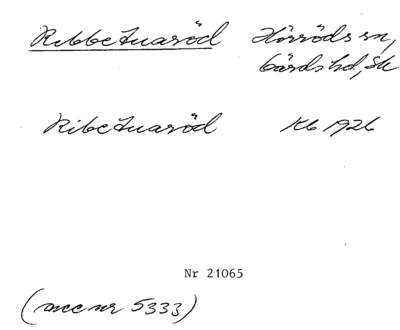 Ribbetuaröd Hörröds sn,
Gärds hd, Sk
Ribetuaröd Kb 1926
Nr 21065
(acc nr 5333)